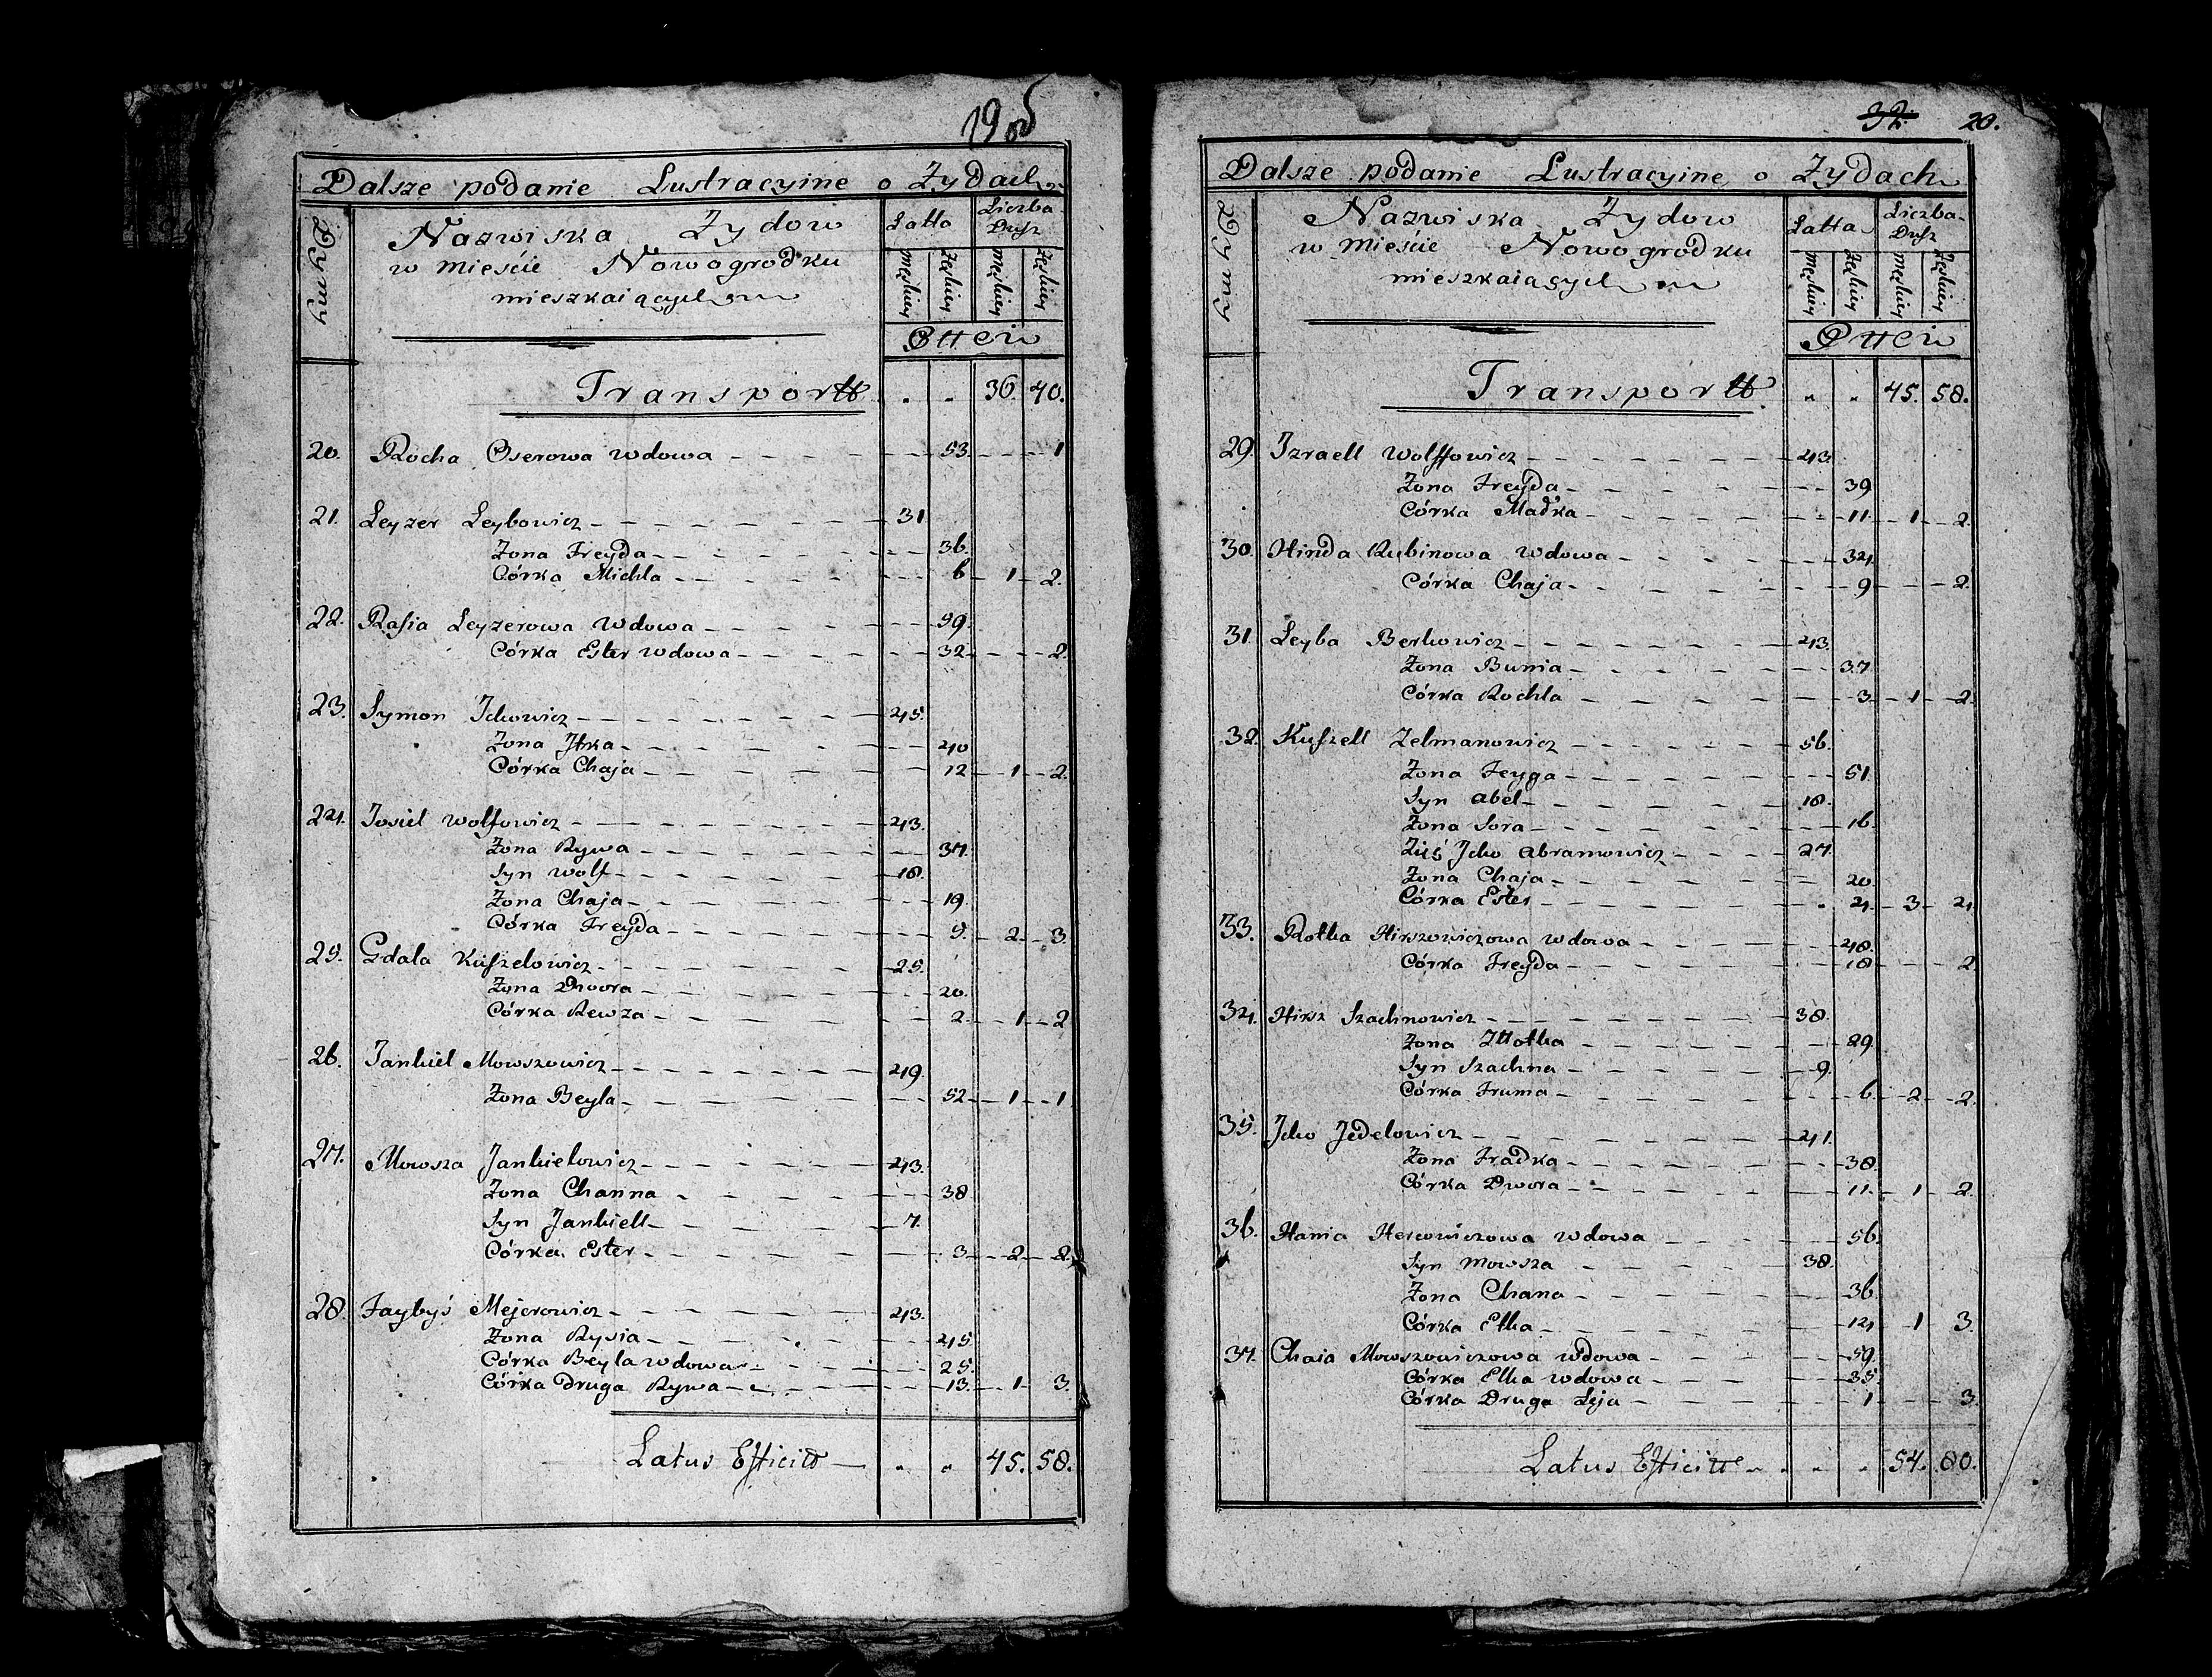 19 ob
Dalsze podanie Lustracyine o Żydach
Dymy
Nazwiska Żydow
w Mieście Nowogrodku
mieszkaiących
Latta
Liczba Dusz
męskiey żęskiey męskiey żęskiey
Pttci
Transportt " " 36. 40.
20. Rocha Oserowa wdowa 53. 1
21. Leyzer Leybowicz 31
Żona Freyda 36.
Córka Michla 6 1 2.
22. Rasia Leyzerowa wdowa 59.
Córka Ester wdowa 32 2.
23. Symon Ickowicz 45.
Żona Itka 40
Córka Chaja 12 1 2.
24. Josiel Wolfowicz 43.
Żona Rywa 37.
Syn Wolf 18.
Żona Chaja 19.
Córka Freyda 9. 2 3.
25. Gdala Kuszelowicz 25.
Żona Dwora 20.
Córka Rewza 2. 1 2
26. Jankiel Mowszowicz 49.
Żona Beyla 52 1 1
27. Mowsza Jankielowicz 43.
Żona Channa 38
Syn Jankiell 7.
Córka Ester 3 2 2.
28. Faybyś Mejerowicz 43.
Żona Rysia 45
Córka Beyla wdowa 25.
Córka Druga Rywa 13. 1 3.
Latus Efficitt " " 45. 58.
32. 20.
Dalsze podanie Lustracyine o Żydach
Dymy
Nazwiska Żydow
w Mieście Nowogrodku
mieszkaiących
Latta
Liczba Dusz
męskiey żęskiey męskiey żęskiey
Pttci
Transportt " " 45. 58.
29. Izraell Wolffowicz 43
Żona Freyda 39
Córka Madka 11. 1 2.
30. Hinda Rubinowa wdowa 34.
Córka Chaja 9 2.
31. Leyba Berkowicz 43.
Żona Bunia 37.
Córka Rochla 3 1 2
32. Kuszell Zelmanowicz 56.
Żona Feyga 51.
Syn Abel 18.
Żona Sora 16.
Zięć Icko Abramowicz 27.
Żona Chaja 20.
Córka Ester 4. 3 4.
33. Rotka Hirszowiczowa wdowa 48.
Córka Freyda 18 2.
34. Hirsz Szachnowicz 38.
Żona Złotka 29.
Syn Szachna 9.
Córka Fruma 6. 2 2.
35. Icko Jedelowicz 41.
Żona Fradka 38.
Córka Dwora 11. 1 2.
36. Hania Hercowiczowa wdowa 56.
Syn Mowsza 38.
Żona Chana 36.
Córka Etka 14 1 3.
37. Chaia Mowszowiczowa wdowa 59.
Córka Elka wdowa 35.
Córka Druga Leja 1 3.
Latus Efficitt " " 54. 80.